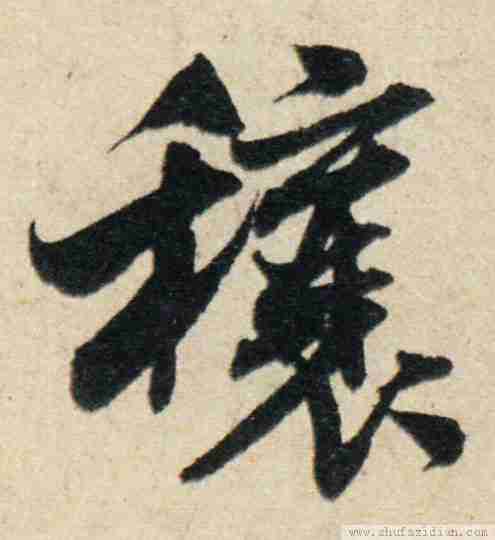 穰
www.shufazidian.com